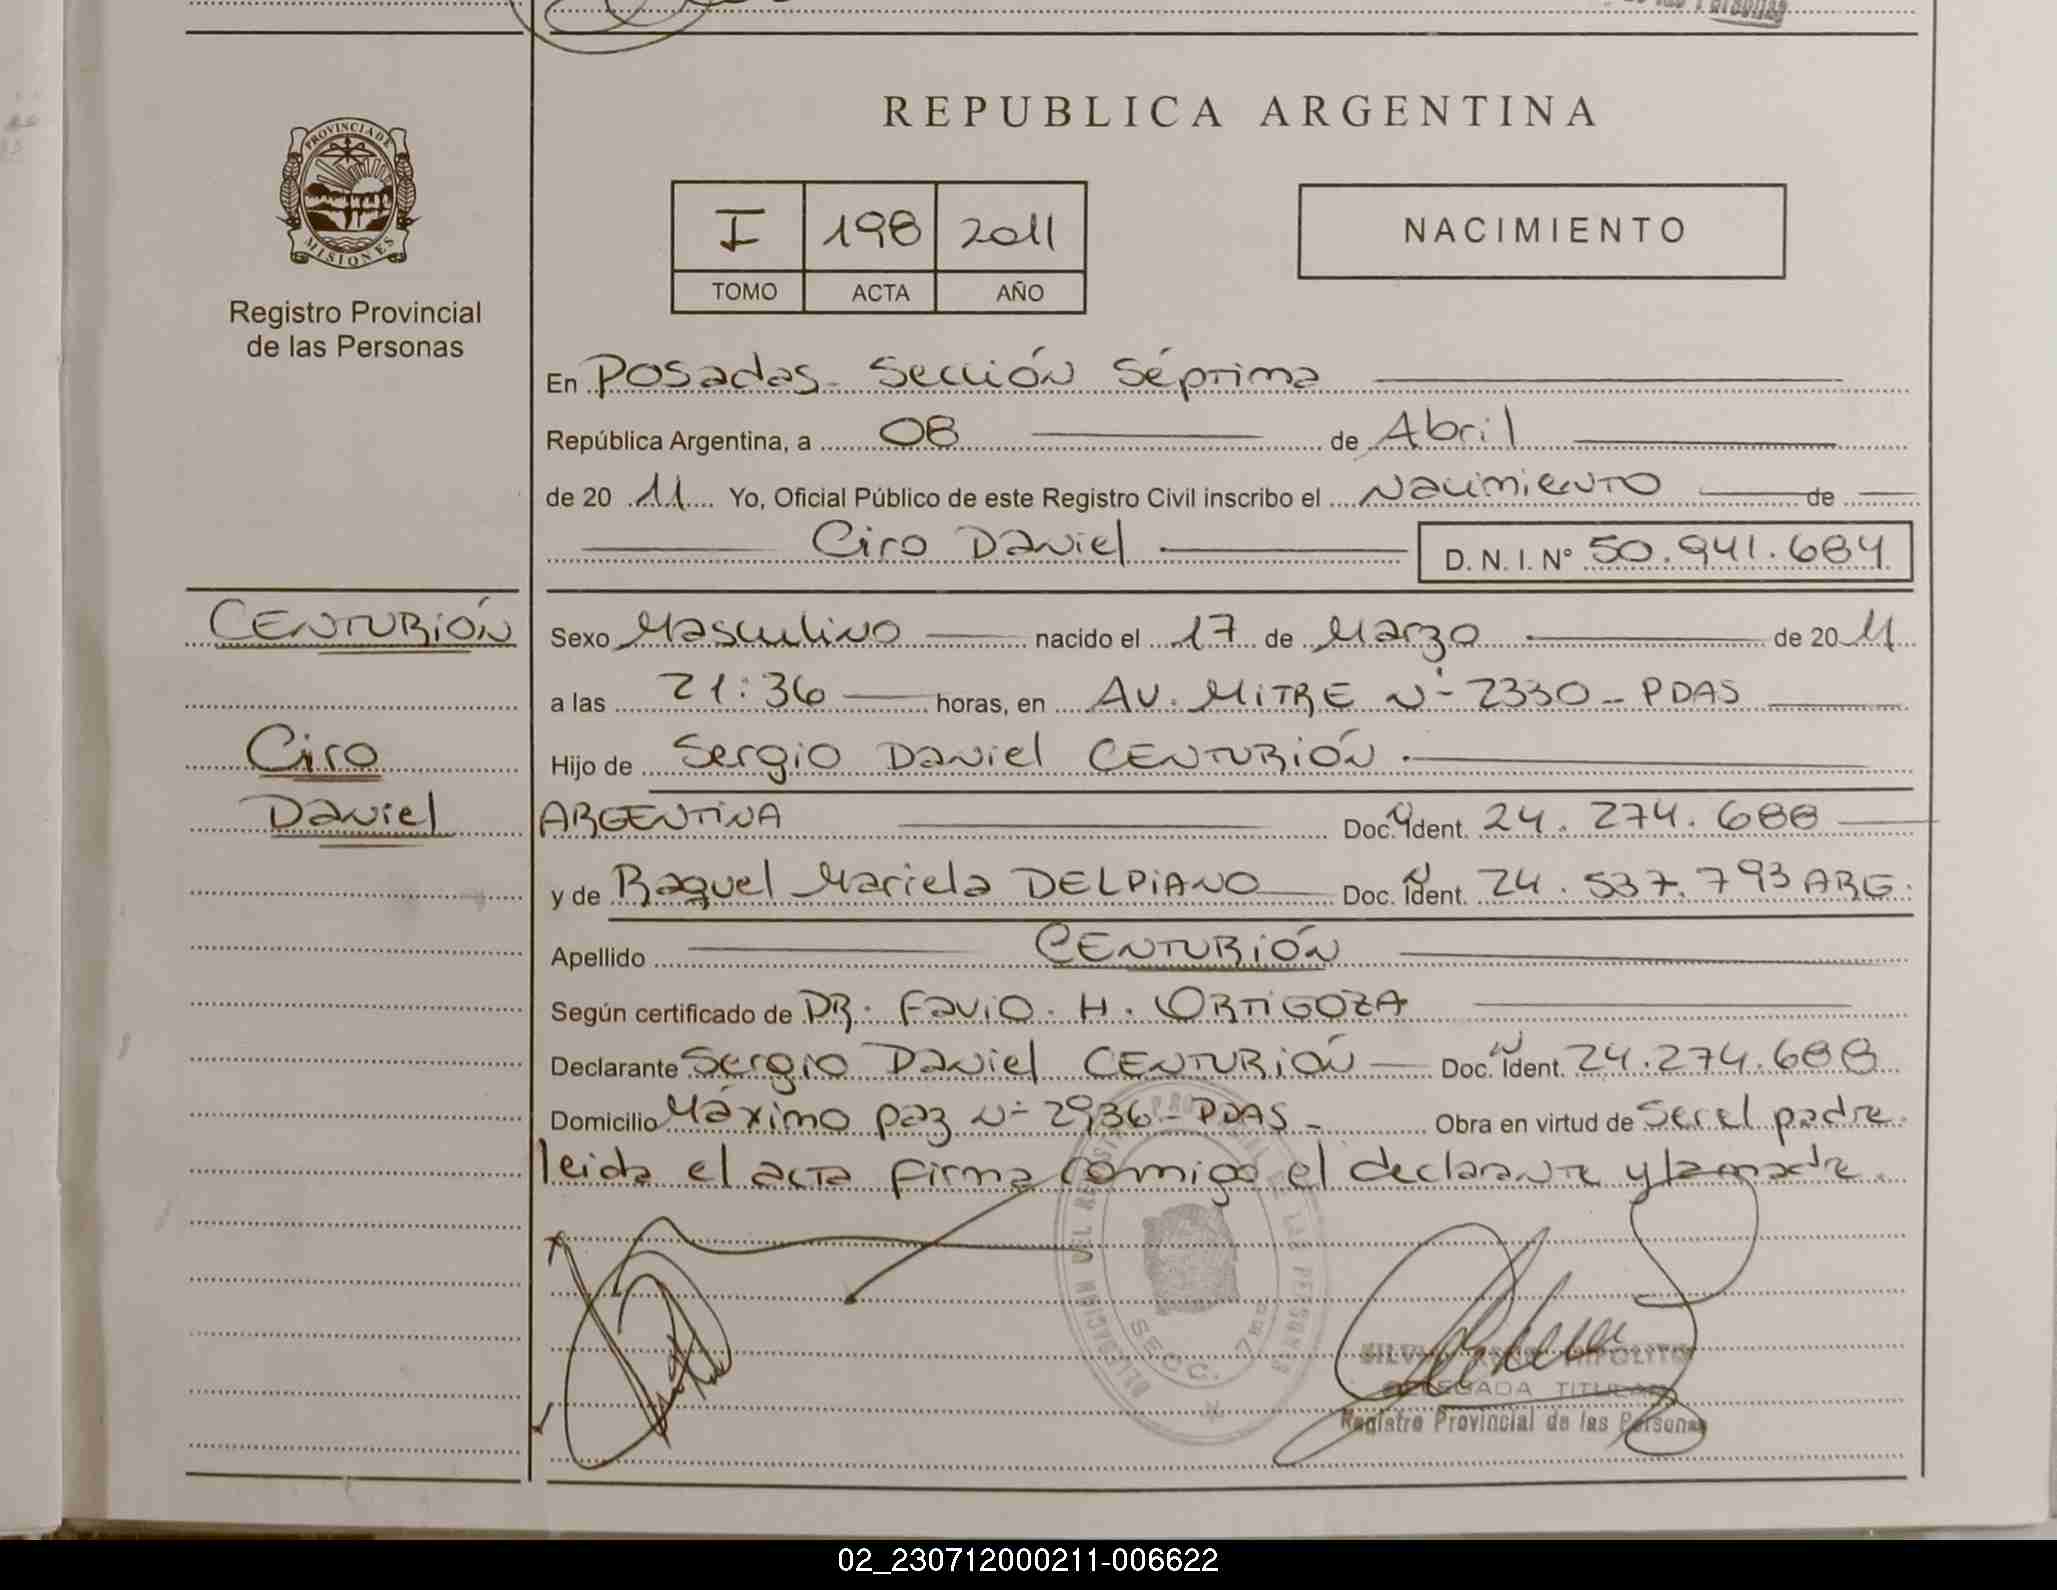 de las Personas
REPUBLICA ARGENTINA
PROVINCIA DE
MISIONES
Registro Provincial
de las Personas
I 198 2011
TOMO ACTA AÑO
NACIMIENTO
En Posadas - Sección Séptima
República Argentina, a 08 de Abril
de 20 11 Yo, Oficial Público de este Registro Civil inscribo el Nacimiento de
Ciro Daniel D. N. I. N° 50.941.684
CENTURIÓN
Ciro
Daniel
Sexo Masculino nacido el 17 de Marzo de 20 11
a las 21:36 horas, en AV. MITRE N° 2330 - PDAS
Hijo de Sergio Daniel CENTURIÓN
ARGENTINA Doc. Ident. 24.274.688
y de Raquel Mariela DELPIANO Doc. Ident. 24.537.793 ARG.
Apellido CENTURIÓN
Según certificado de DR. Favio. H. ORTIGOZA
Declarante Sergio Daniel CENTURIÓN Doc. Ident. 24.274.688
Domicilio Máximo paz N° 2936 - PDAS - Obra en virtud de Ser el padre.
leida el acta firma comigo el declarante y la madre.
DELEGACION DEL REGISTRO PROVINCIAL DE LAS PERSONAS
SECC. 7ma
HIPOLITO
DELEGADA TITULAR
Registro Provincial de las Personas
02_230712000211-006622